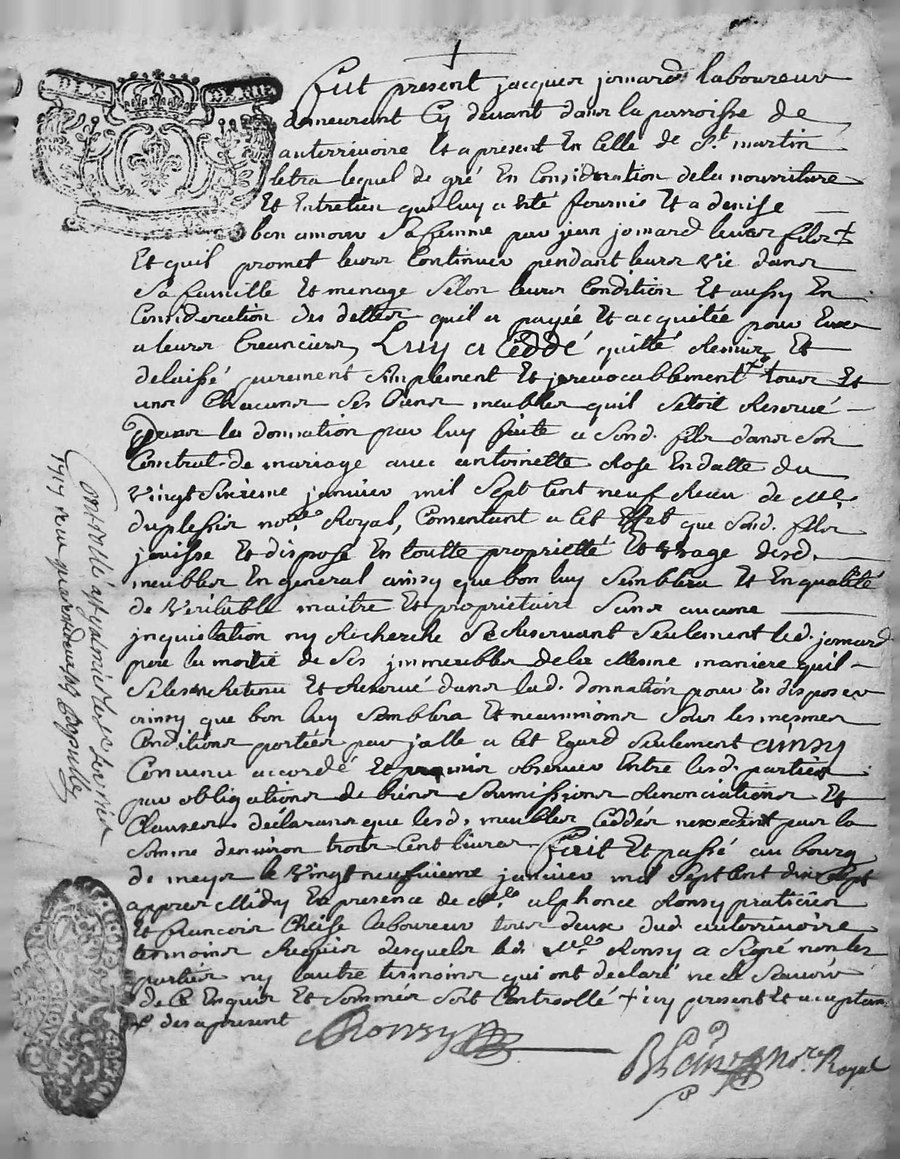 Fut present jacques jomard laboureur
demeurant Cy devant dans la parroisse de
auterrivoire Et apresent En Celle de St martin
letra lequel de gré En Consideration dela nourriture
Et Entretien que luy a esté fournis Et a denise
bon amour sa femme par jean jomard leurs fils +
Et quil promet leurs Continuer pendant leurs vie dans
sa famille Et menage selon leurs Condition Et aussy En
Consideration des dettes quil a payée Et acquitée pour Eux
a leurs Creanciers, Luy a Ceddé quitté Remis Et
delaissé purement simplement Et jrevocablement tous Et
uns Chacuns ses biens meubles quil setoit Reservé
par la donnation par luy faite a sond. fils dans son
Contrat de mariage avec antoinette Rose En datte du
vingt sixieme janvier mil sept Cent neuf Receu de Me
duplessis notre Royal, Consentant a Cet Effet que sond. fils
jouisse Et dispose En toutte proprietté Et usage desd.
meubles En general ainsy que bon luy semblera Et En qualité
de veritable maitre Et proprietaire sans aucune
jnquietation ny Recherche se Reservant seulement led. jomard
pere la moitié de ses jmmeubles de la mesme maniere quil
se les a Retenu Et Reservé dans lad. donnation pour En disposer
ainsy que bon luy semblera Et neanmoins sous les mesmes
Conditions portées par jcelle a Cet Egard seulement ainsy
Convenu accordé Et promis observer Entre lesd. parties
par obligations de biens soumissions Renonciations Et
Clauses, declarans que lesd. meubles Ceddés nexcedent pas la
somme denviron trois Cent livres Fait Et passé au bourg
de meys le vingt neufvieme janvier mil sept Cent dix sept
appres Midy En presence de alphonce Ronsy praticien
Et francois Cheise laboureur tous deux dud. auterrivoire
temoins Requis desquels led. Ronsy a signé non les
parties ny autre temoins qui ont declaré ne le scavoir
de Ce Enquis Et sommés soit Controollé + icy present Et acceptant
+ des apresent
Ronsy
notre Royal
Controllé
1717